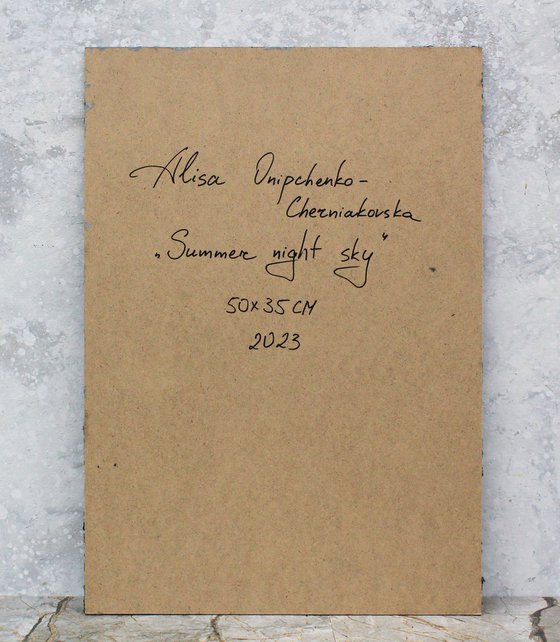 Alisa Onipchenko-
Cherniakovska
„Summer night sky“
50x35 CM
2023